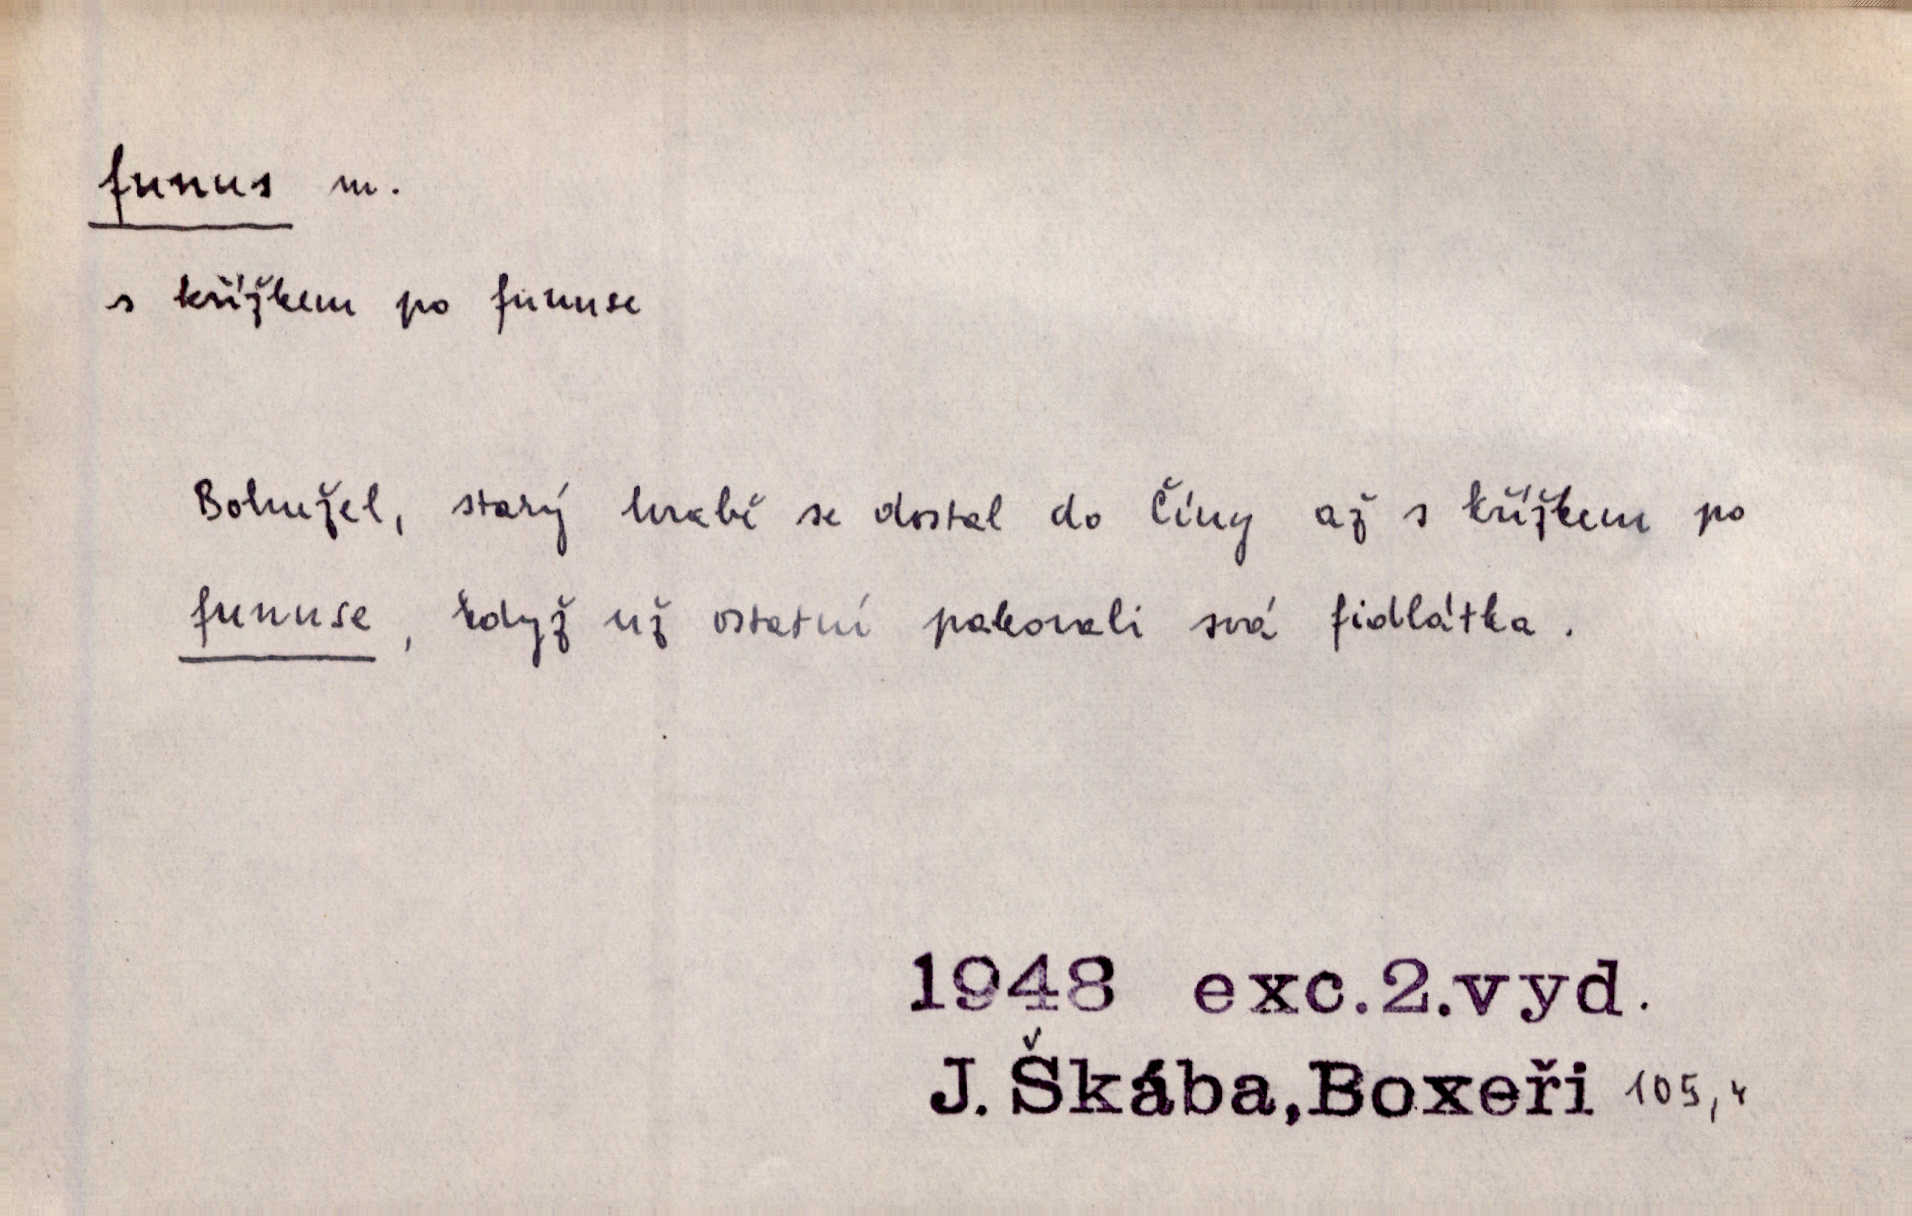 funus m.
s křížkem po funuse
Bohužel, starý hrabě se dostal do Číny až s křížkem po
funuse, když už ostatní pakovali svá fidlátka.
1948 exc.2.vyd.
J. Škába, Boxeři 105,4